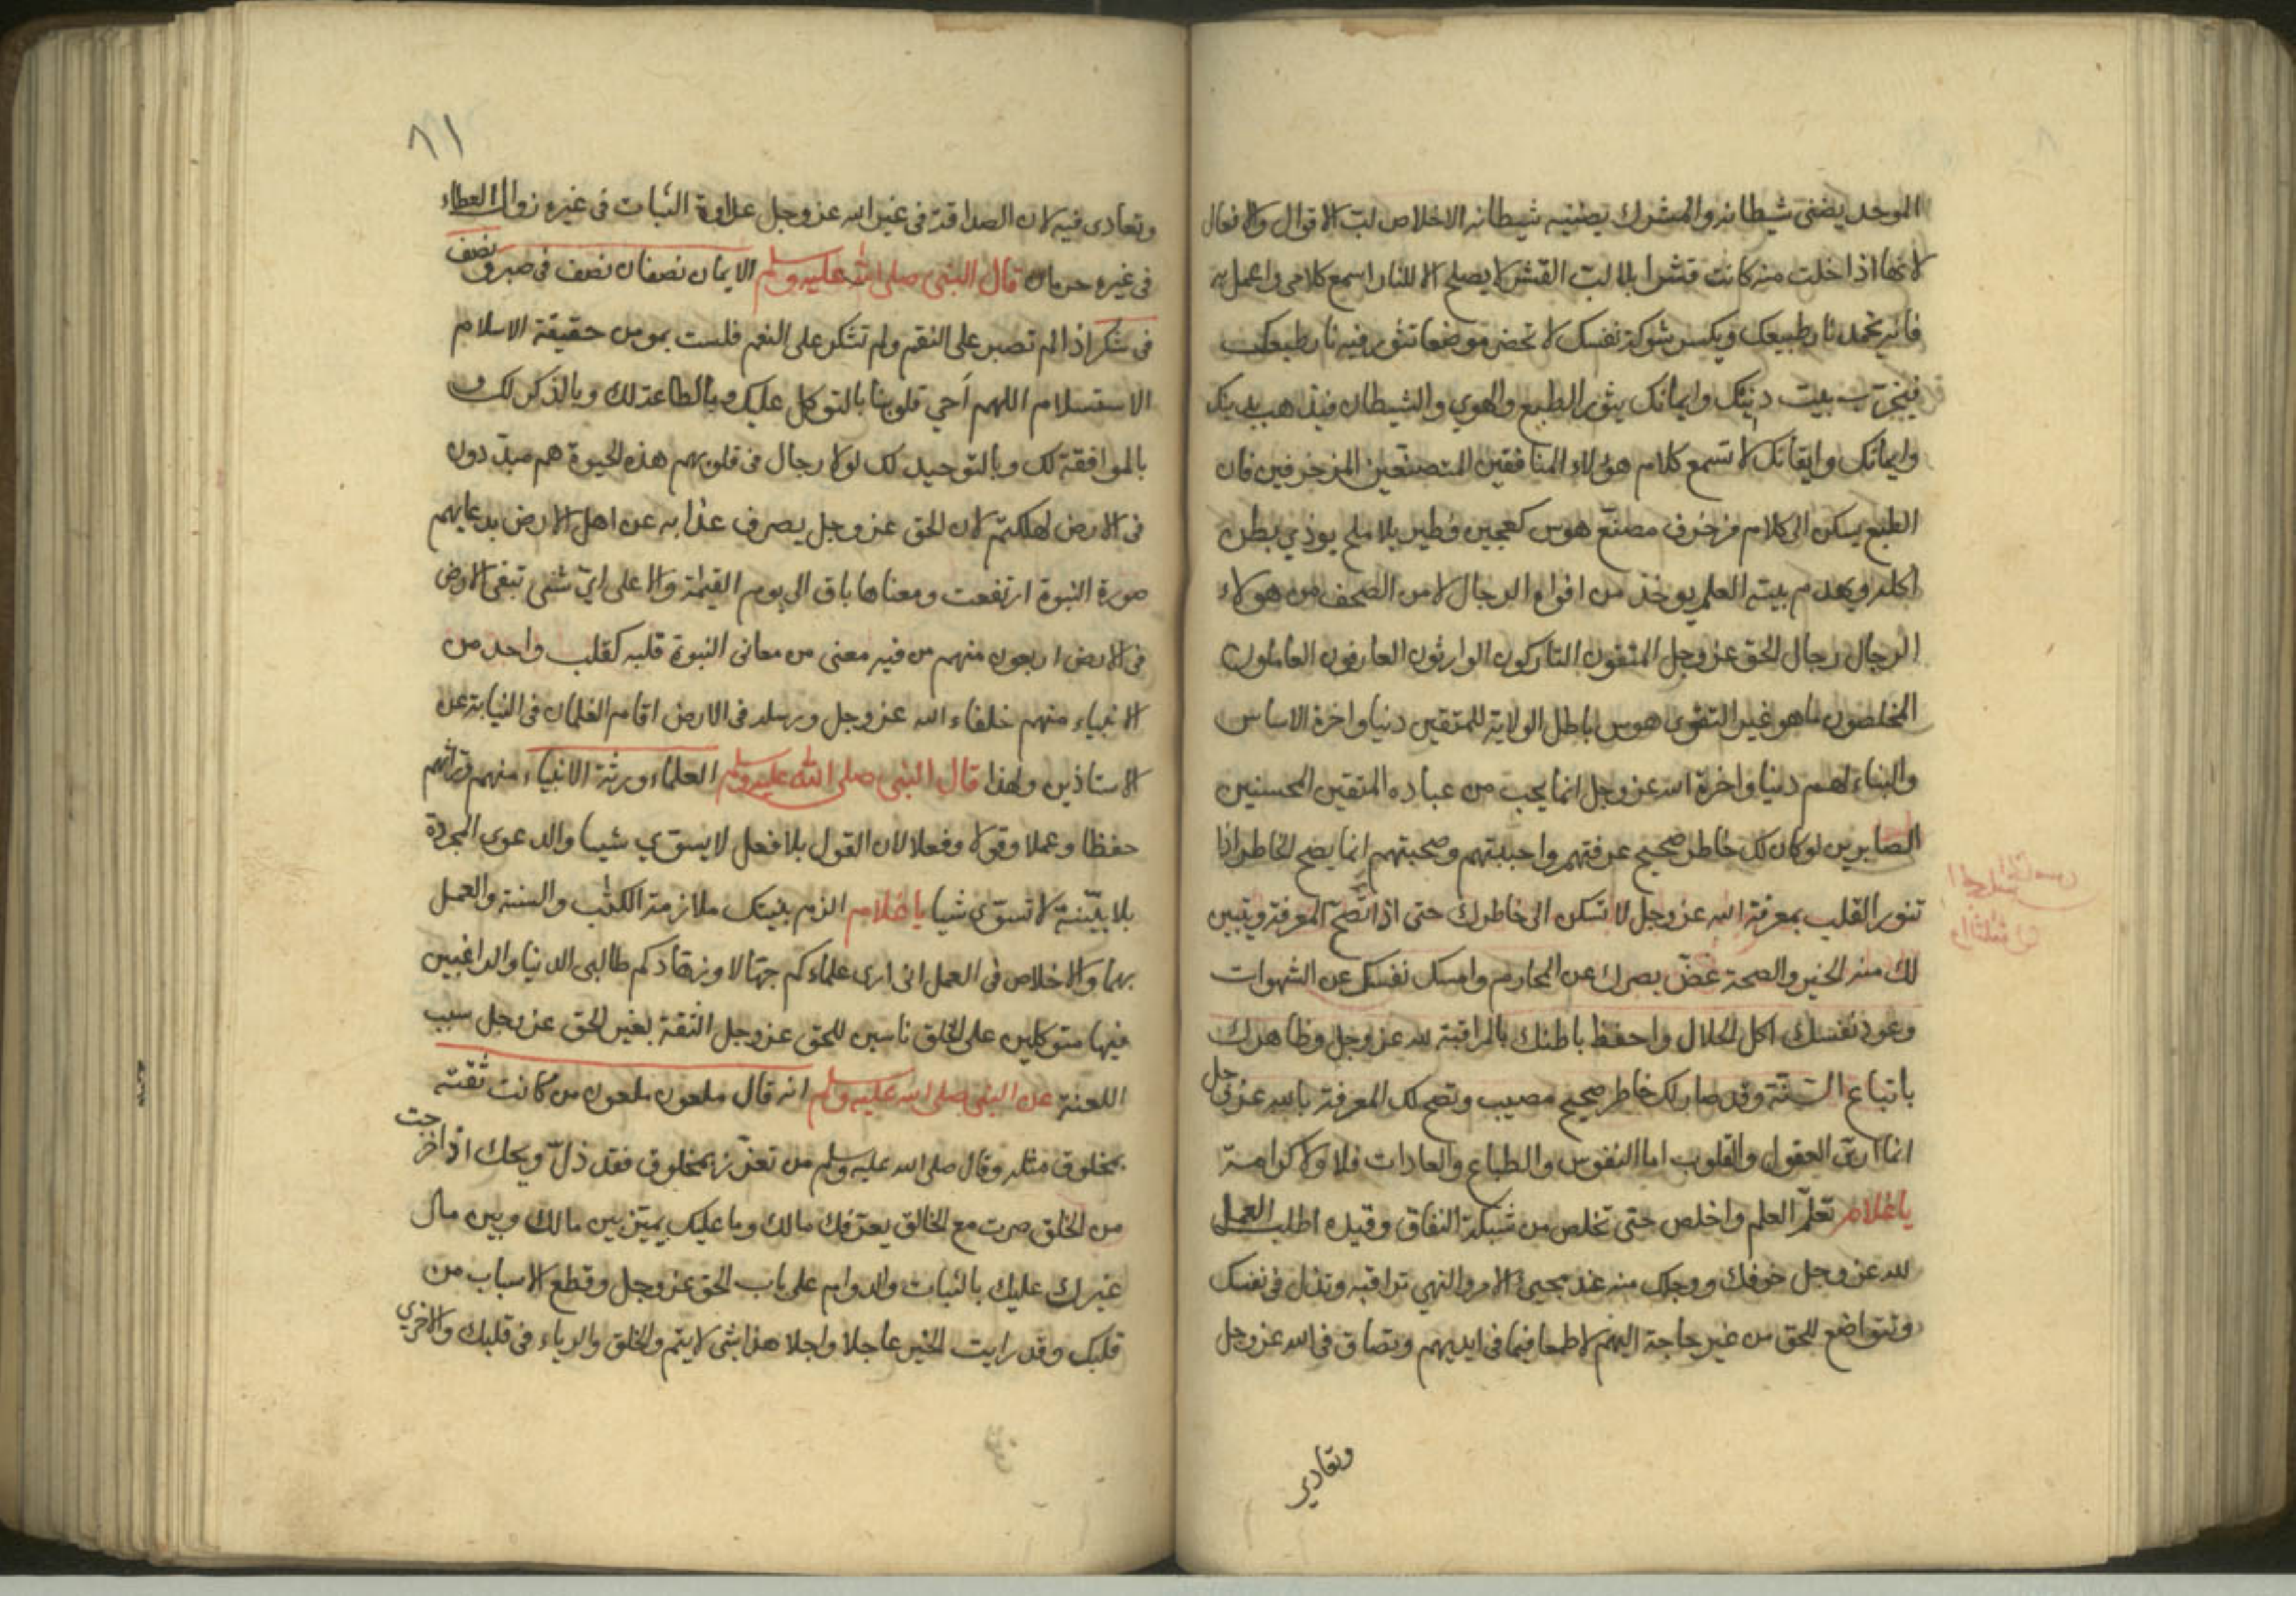 الموحد يضنى شيطانه والمشرك يضنيه شيطانه الاخلاص لبّ الاقوال والافعال
لانها اذا خلت منه كانت قشرا بلا لبّ القشر لا يصلح الا للنار اسمع كلامى واعمل به
فانه يخمد نار طبيعك ويكسر شوكة نفسك لا تحضر موضعا تثور فيه نار طبعك
فيخرّب بيت دينك وايمانك يثور الطبع والهوي والشيطان فيذهب بدينك
وايمانك وايقانك لا تسمع كلام هولاء المنافقين المتصنّعين المزخرفين فان
الطبع يسكن الى كلام مزخرف مصنّع هوس كعجين فطير بلا ملح يوذي بطن
اكله ويهدم بيته العلم يوخذ من افواه الرجال لا من الصحف من هولاء
الرجال رجال الحق عز وجل المتقون التاركون الوارثون العارفون العاملون
المخلصون ما هو غير التقوى هوس باطل الولاية للمتقين دنيا واخرة الاساس
والبناء لهم دنيا واخرة الله عز وجل انما يحب من عباده المتقين المحسنين
الصابرين لو كان لك خاطر صحيح عرفتهم واحببتهم وصحبتهم انما يصح الخاطر اذا
تنور القلب بمعرفة الله عز وجل لا تسكن الى خاطرك حتى اذا تصّح المعرفة ويتبين
لك منه الخير والصحة غضّ بصرك عن المحارم وامسك نفسك عن الشهوات
وعود نفسك اكل الحلال واحفظ باطنك بالمراقبة لله عز وجل وظاهرك
باتباع السّنّة وقد صار لك خاطر صحيح مصيب وتصح لك المعرفة بالله عز وجل
انما اربّى العقول والقلوب اما النفوس والطباع والعادات فلا ولا كرامة
يا غلام تعلّم العلم واخلص حتى تخلص من شبكة النفاق وقيده اطلب العمل
لله عز وجل خوفك ووجلك منه عند مجيئ الامر والنهي تراقبه وتذل فى نفسك
وتتواضع للحق من غير حاجة اليهم لا طمعا فيما فى ايديهم وتصاق فى الله عز وجل
وتعادي
٨١
وتعادى فيه لان الصداقة فى غير الله عز وجل عداوة الثبات فى غيره زوال العطاء
فى غيره حرمان قال النبى صلى الله عليه وسلم الايمان نصفان نصف فى صبر ونصف
فى شكر اذا لم تصبر على النقم ولم تشكر على النعم فلست بمومن حقيقة الاسلام
الاستسلام اللهم اَحي قلوبنا بالتوكل عليك وبالطاعة لك وبالذكر لك و
بالموافقة لك وبالتوحيد لك لولا رجال فى قلوبهم هذه الحيوة هم مبدّدون
فى الارض لهلكتم لان الحق عز وجل يصرف عذابه عن اهل الارض بدعايهم
صورة النبوة ارتفعت ومعناها باق الى يوم القيمة والا على ايّ شئى تبقى الارض
فى الارض اربعون منهم من فيه معنى من معانى النبوة قلبه كقلب واحد من
الانبياء منهم خلفاء الله عز وجل ورسله فى الارض اقام الغلمان فى النيابة عن
الاستاذين ولهذا قال النبى صلى الله عليه وسلم العلماء ورثة الانبياء منهم وراثهم
حفظا وعملا وقولا وفعلا لان القول بلا فعل لا يسوّي شيا والدعوى المجردة
بلا بيّنة لا تسوّي شيا يا غلام الزم بنيتك ملازمة الكتٰب والسنة والعمل
بهما والاخلاص فى العمل انى ارى علماءكم جهّالا وزهّادكم طالبى الدنيا والراغبين
فيها متوكلين على الخلق ناسين للحق عز وجل الثقة بغير الحق عز وجل سبب
اللعنة عن النبى صلى الله عليه وسلم انه قال ملعون ملعون من كانت ثقته
بمخلوق مثله وقال صلى الله عليه وسلم من تعزّز بمخلوق فقد ذلّ ويحك اذا خرجت
من الخلق صرت مع الخالق يعرّفك مالك وما عليك يميّز بين مالك وبين مال
غيرك عليك بالثبات والدوام على باب الحق عز وجل وقطع الاسباب من
قلبك وقد رايت الخير عاجلا واجلا هذا شى لا يتم والخلق والرياء فى قلبك والاخرى